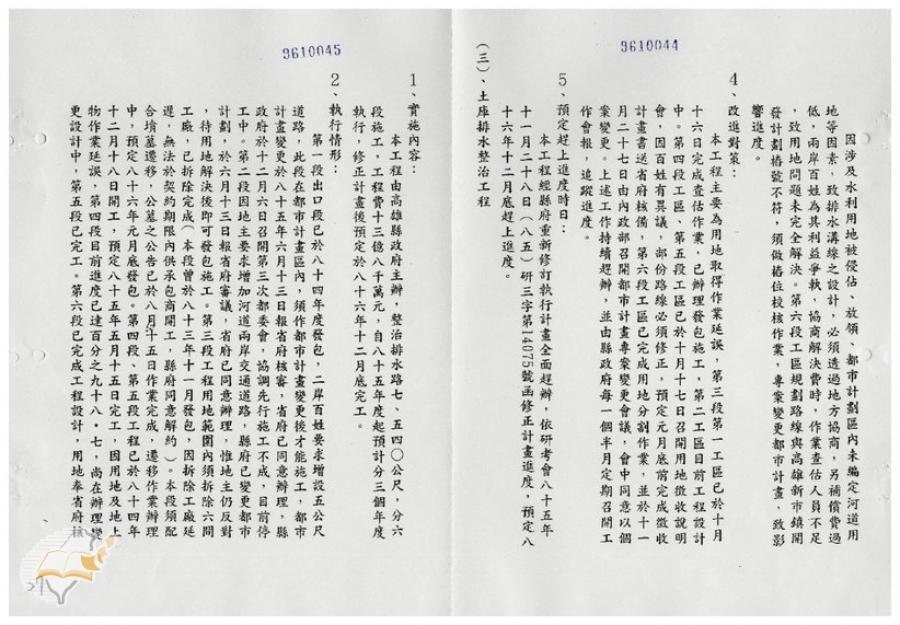 9610044
因涉及水利用地被侵佔、放領、都市計劃區內未編定河道用
地等因素，致排水溝線之設計，必須透過地方協商，另補償費過
低，兩岸百姓為其利益爭執，協商解決費時，作業查估人員不足
，致用地問題未完全解決。第六段工區規劃路線與高雄新市鎮開
發計劃樁號不符，須做樁位校核作業，專案變更都市計畫，致影
響進度。
4、改進對策：
本工程主要為用地取得作業延誤，第三段第一工區已於十月
十六日完成查估作業，已辦理發包施工，第二工區目前工程設計
中。第四段工區、第五段工區已於十月十七日召開用地徵收說明
會，因百姓有異議，部份路線必須修正，預定元月底前完成徵收
計畫書送省府核備，第六段工區已完成用地分割作業，並於十一
月二十七日由內政部召開都市計畫專案變更會議，會中同意以個
案變更。上述工作持續趕辦，並由縣政府每一個半月定期召開工
作會報，追蹤進度。
5、預定趕上進度時日：
本工程經縣府重新修訂執行計畫全面趕辦，依研考會八十五年
十一月二十八日（八五）研三字第14075號函修正計畫進度，預定八
十六年十二月底趕上進度。
（三）、土庫排水整治工程
9610045
1、實施內容：
本工程由高雄縣政府主辦，整治排水路七、五四〇公尺，分六
段施工，工程費十三億八千萬元，自八十五年度起預計分三個年度
執行，修正計畫後預定於八十六年十二月底完工。
2、執行情形：
第一段出口段已於八十四年度發包，二岸百姓要求增設五公尺
道路，此段在都市計畫區內，須作都市計畫變更後才能施工，都市
計畫變更於八十五年六月十三日報省府核審，省府已同意辦理，縣
政府於十二月六日召開第三次都委會，協調先行施工不成，目前停
工中。第二段因地主要求增加河道兩岸交通道路，縣府已變更都市
計劃，於六月十三日報省府審議，省府已同意辦理，惟地主仍反對
，待用地解決後即可發包施工。第三段工程用地範圍內須拆除六間
工廠，已拆除完成（本段曾於八十三年十一月發包，因拆除工廠延
遲，無法於契約期限內供承包商開工，縣府同意解約）。本段須配
合墳墓遷移，公墓之公告已於八月十五日作業完成，遷移作業辦理
中，預定八十六年元月底發包。第四段、第五段工程已於八十四年
十二月十八日開工，預定八十五年五月十五日完工，因用地及地上
物作業延誤，第四段目前進度已達百分之九十八・七，尚在辦理變
更設計中，第五段已完工。第六段已完成工程設計，用地奉省府核